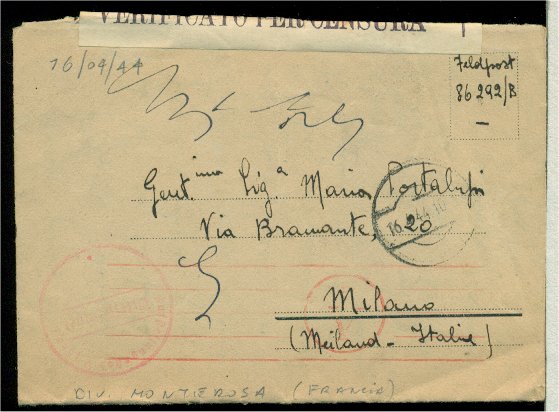 VERIFICATO PER CENSURA
16/09/44
Feldpost
86292/B
Gent.ima Sig.a Maria Portalupi
Via Bramante, 20
16.9.44.10
Milano
(Meiland - Italie)
DIV. MONTEROSA (FRANCIA)